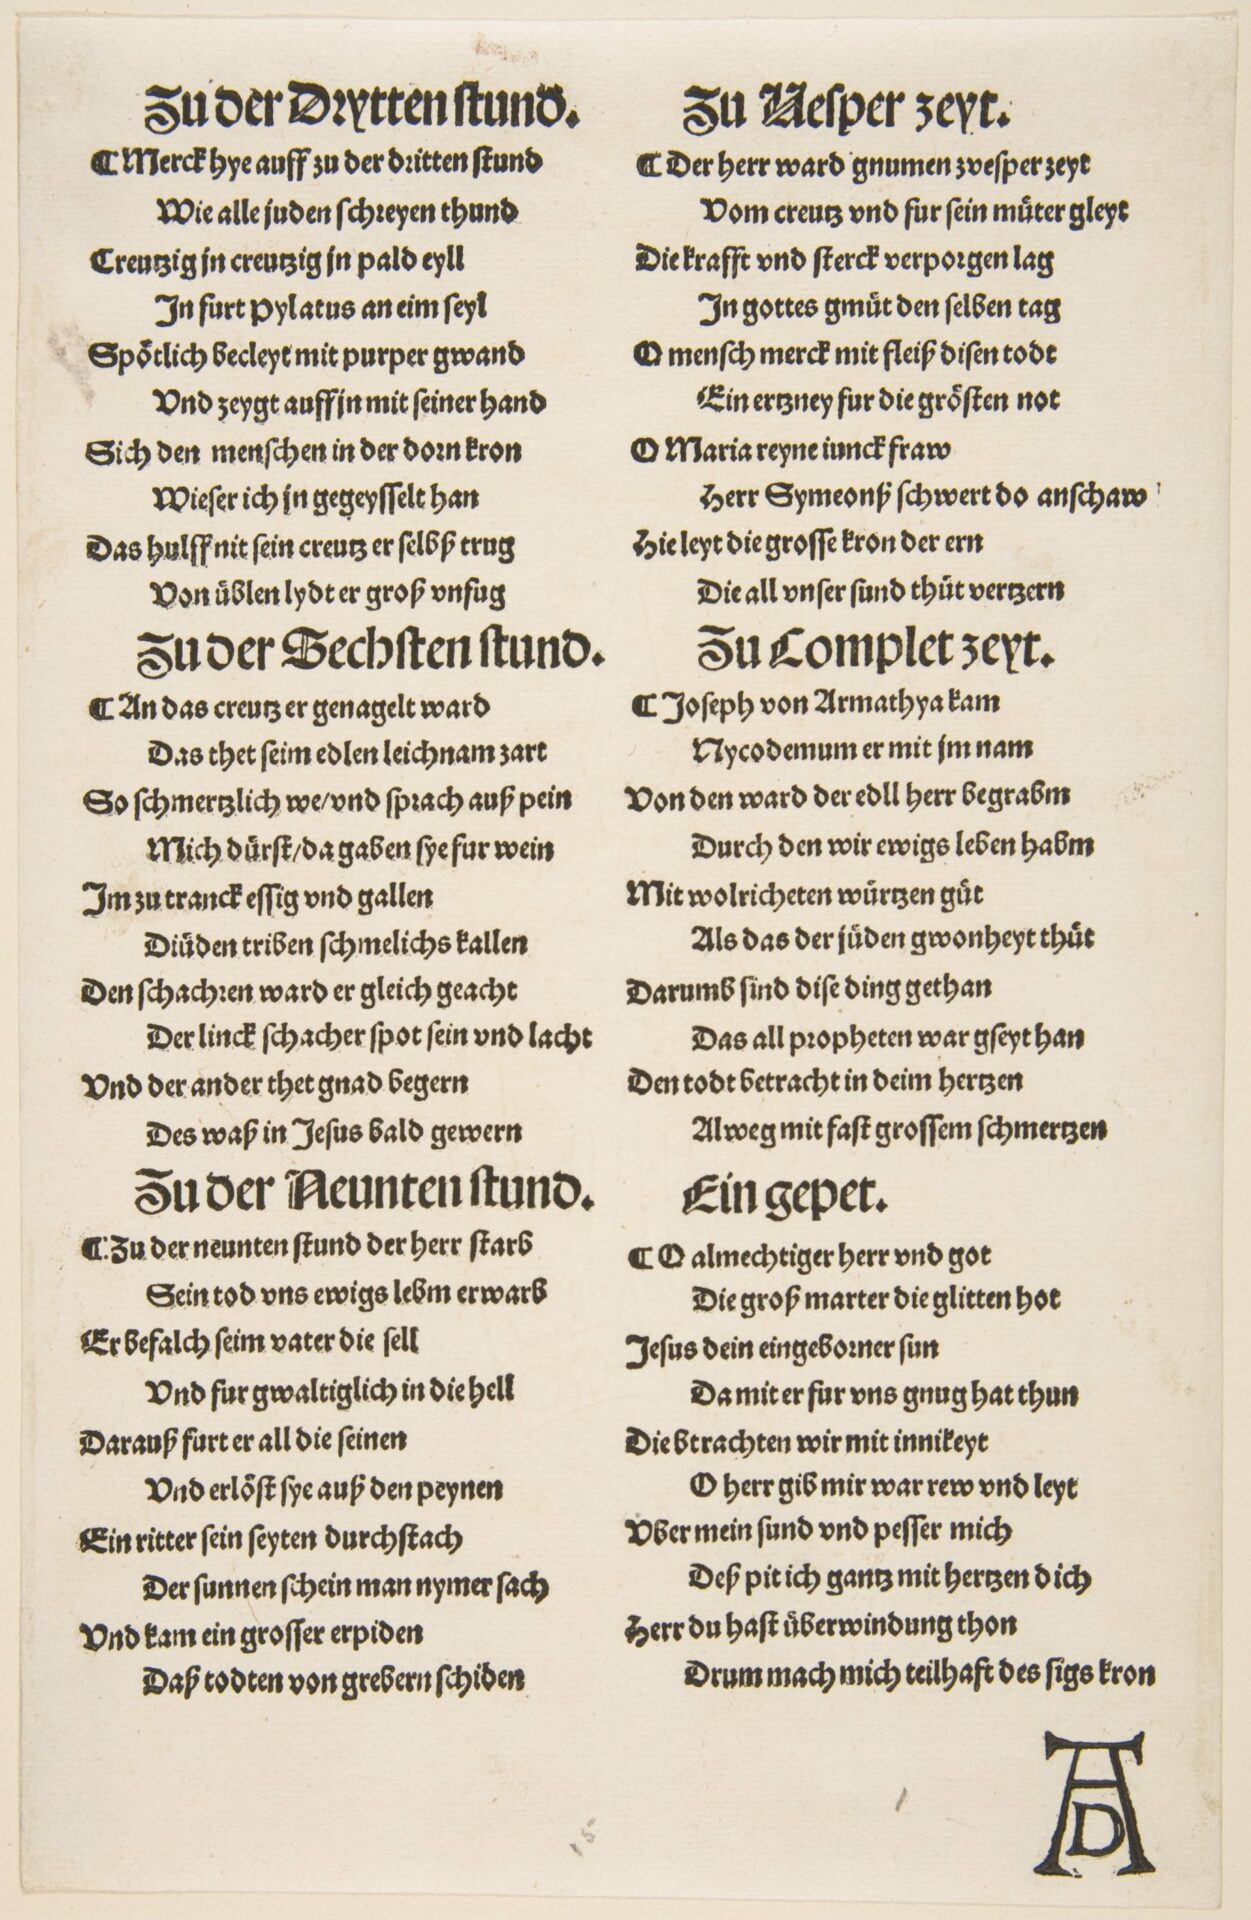 Zu der Drytten stund.
¶ Merck hye auff zu der dritten stund
Wie alle juden schreyen thund
Creutzig jn creutzig jn pald eyll
In furt Pylatus an eim seyl
Spötlich becleyt mit purper gwand
Vnd zeygt auff jn mit seiner hand
Sich den menschen in der dorn kron
Wieser ich jn gegeysselt han
Das hulff nit sein creutz er selbß trug
Von üblen lydt er groß vnfug
Zu der Sechsten stund.
¶ An das creutz er genagelt ward
Das thet seim edlen leichnam zart
So schmertzlich we/vnd sprach auß pein
Mich dürst/da gaben sye fur wein
Im zu tranck essig vnd gallen
Diüden triben schmelichs kallen
Den schachren ward er gleich geacht
Der linck schacher spot sein vnd lacht
Vnd der ander thet gnad begern
Des waß in Jesus bald gewern
Zu der Neunten stund.
¶ Zu der neunten stund der herr starb
Sein tod vns ewigs lebm erwarb
Er befalch seim vater die sell
Vnd fur gwaltiglich in die hell
Darauß furt er all die seinen
Vnd erlöst sye auß den peynen
Ein ritter sein seyten durchstach
Der sunnen schein man nymer sach
Vnd kam ein grosser erpiden
Daß todten von grebern schiden
Zu Vesper zeyt.
¶ Der herr ward gnumen zvesper zeyt
Vom creutz vnd fur sein müter gleyt
Die krafft vnd sterck verporgen lag
In gottes gmüt den selben tag
O mensch merck mit fleiß disen todt
Ein ertzney fur die grösten not
O Maria reyne iunckfraw
Herr Symeonß schwert do anschaw
Hie leyt die grosse kron der ern
Die all vnser sund thüt vertzern
Zu Complet zeyt.
¶ Joseph von Armathya kam
Nycodemum er mit jm nam
Von den ward der edll herr begrabm
Durch den wir ewigs leben habm
Mit wolricheten würtzen güt
Als das der jüden gwonheyt thüt
Darumb sind dise ding gethan
Das all propheten war gseyt han
Den todt betracht in deim hertzen
Alweg mit fast grossem schmertzen
Ein gepet.
¶ O almechtiger herr vnd got
Die groß marter die glitten hot
Jesus dein eingeborner sun
Da mit er fur vns gnug hat thun
Die btrachten wir mit innikeyt
O herr gib mir war rew vnd leyt
Vber mein sund vnd pesser mich
Deß pit ich gantz mit hertzen dich
Herr du hast überwindung thon
Drum mach mich teilhaft des sigs kron
AD